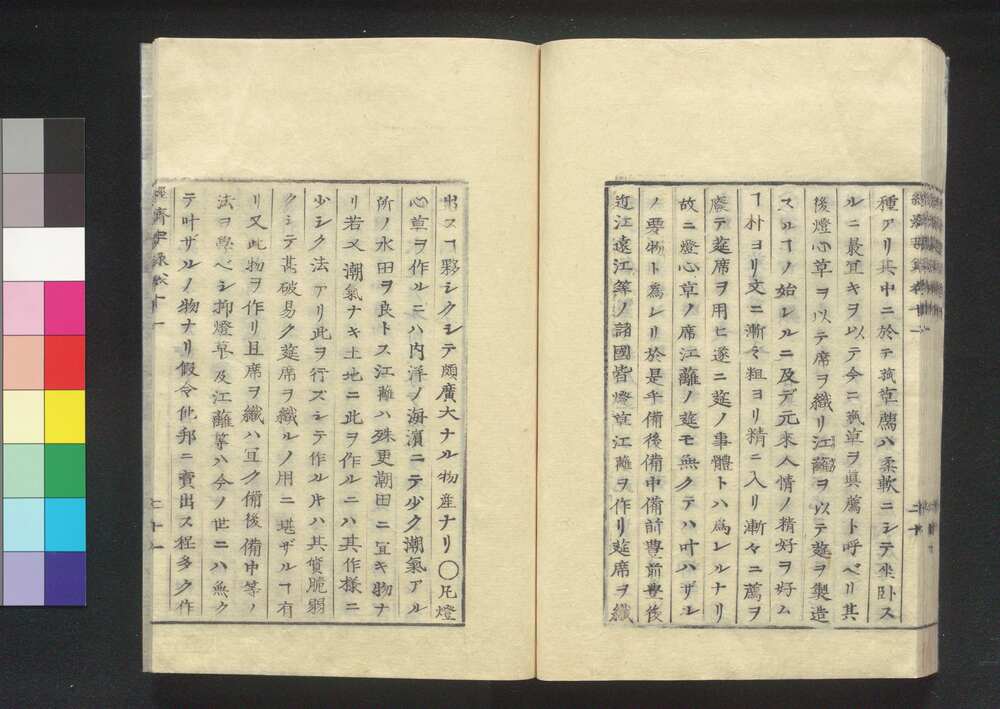 種アリ其中ニ於テ菰草薦ハ柔軟ニシテ坐臥ス
ルニ最宜キヲ以テ今ニ菰草ヲ眞薦ト呼ベリ其
後燈心草ヲ以テ席ヲ織リ江蘺ヲ以テ莚ヲ製造
スルヿノ始レルニ及デ元來人情ノ精好ヲ好ム
ヿ朴ヨリ文ニ漸々粗ヨリ精ニ入リ漸々ニ薦ヲ
廢テ莚席ヲ用ヒ遂ニ莚ノ事體トハ爲レルナリ
故ニ燈心草ノ席江蘺ノ莚モ無クテハ叶ハザル
ノ要物ト爲レリ於是乎備後備中備前豊前豊後
近江遠江等ノ諸國皆燈草江蘺ヲ作リ莚席ヲ織
出スヿ夥シクシテ頗廣大ナル物産ナリ〇凡燈
心草ヲ作ルニハ内洋ノ海濱ニテ少ク潮氣アル
所ノ水田ヲ良トス江蘺ハ殊更潮田ニ宜キ物ナ
リ若又潮氣ナキ土地ニ此ヲ作ルニハ其作様ニ
少シク法アリ此ヲ行ズシテ作ル片ハ其質脆弱
クシテ甚破易ク莚席ヲ織ルノ用ニ堪ザルヿ有
リ又此物ヲ作リ且席ヲ織ハ宜ク備後備中等ノ
法ヲ學ベシ抑燈草及江蘺等ハ今ノ世ニハ無ク
テ叶ザルノ物ナリ假令他邦ニ賣出ス程多ク作